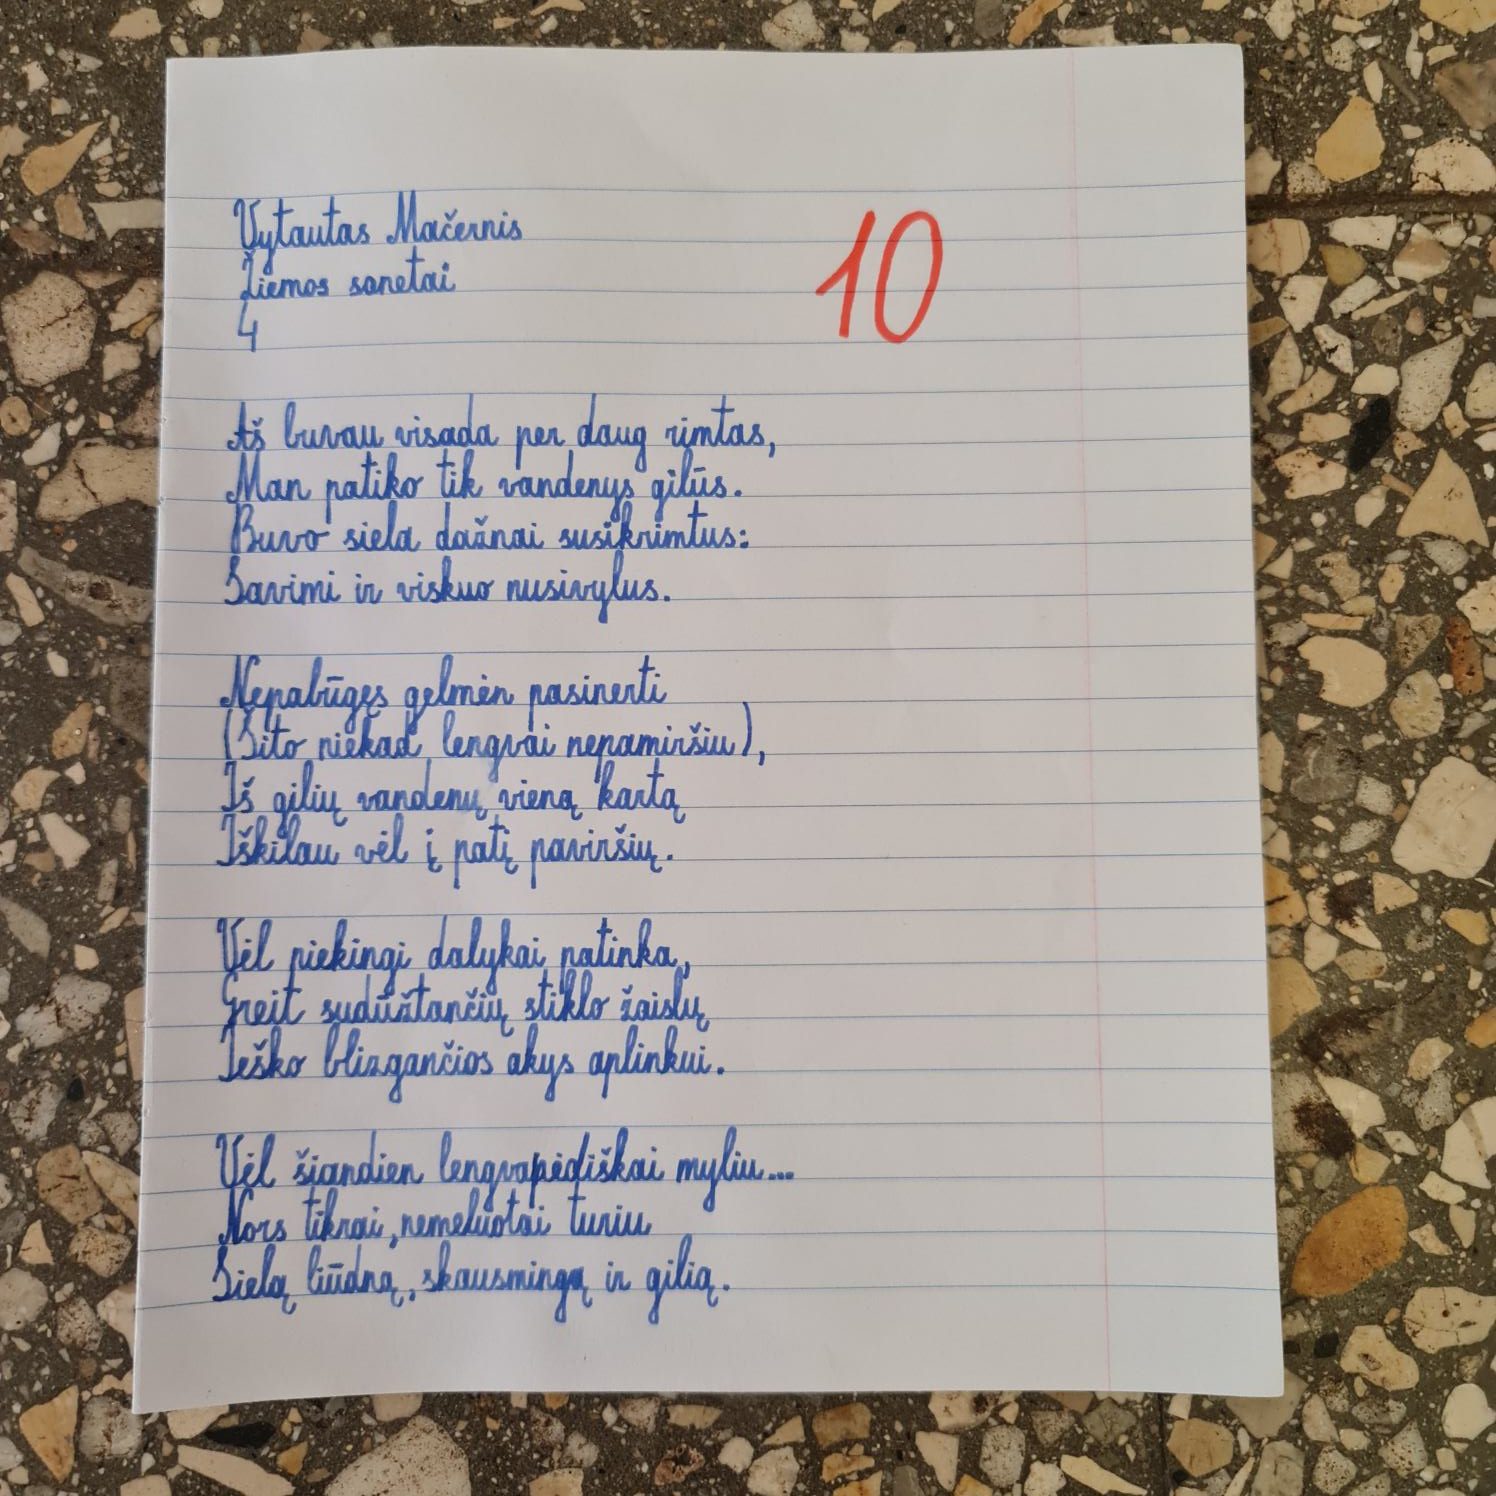 Vytautas Mačernis
Žiemos sonetai
10
4
Aš buvau visada per daug rimtas,
Man patiko tik vandenys gilūs.
Buvo siela dažnai susikrimtus:
Savimi ir viskuo nusivylus.
Nepabūgęs gelmėn pasinerti
(Šito niekad lengvai nepamiršiu),
Iš gilių vandenų vieną kartą
Iškilau vėl į patį paviršių.
Vėl piekingi dalykai patinka,
Greit sudūžtančių stiklo žaislų
Ieško blizgančios akys aplinkui.
Vėl šiandien lengvapėdiškai myliu...
Nors tikrai, nemeluotai turiu
Sielą liūdną, skausmingą ir gilią.